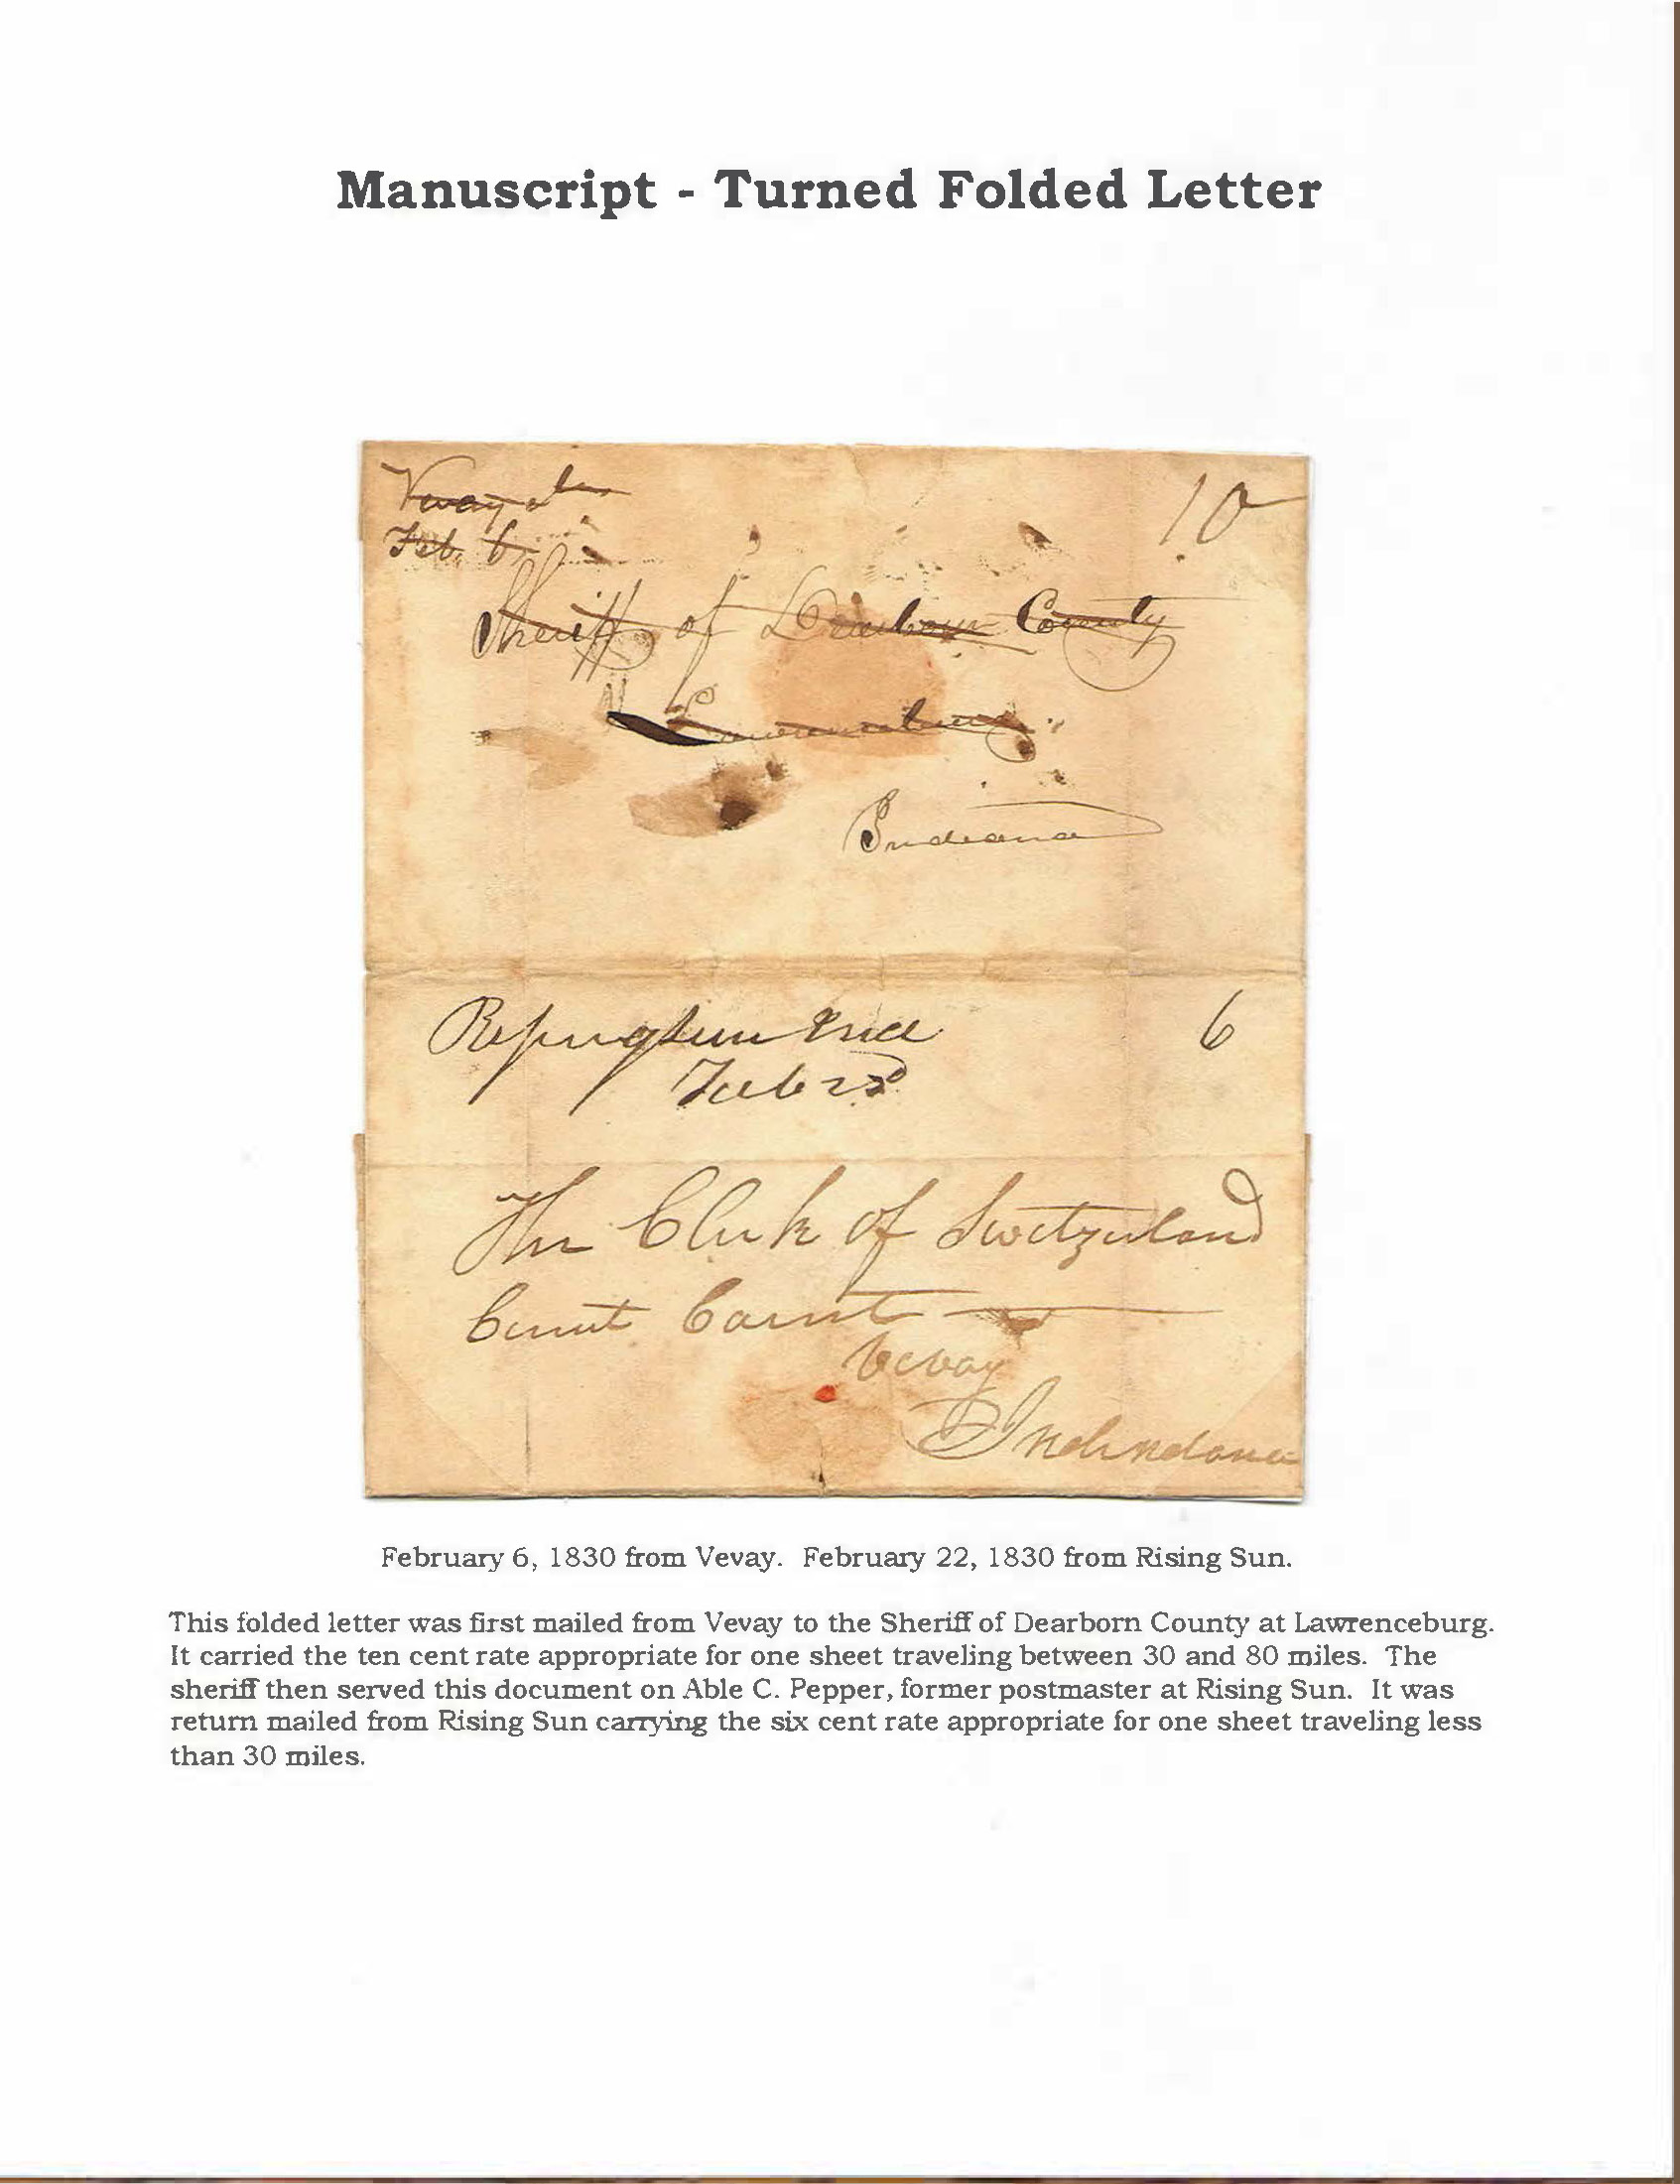 Manuscript - Turned Folded Letter
Vevay Ia
Feb. 6.
10
Sheriff of Dearborn County
Lawrenceburg
Indiana
6
Feb 22
The Clerk of Switzerland
Circuit Court
Vevay
February 6, 1830 from Vevay. February 22, 1830 from Rising Sun.
This folded letter was first mailed from Vevay to the Sheriff of Dearborn County at Lawrenceburg.
It carried the ten cent rate appropriate for one sheet traveling between 30 and 80 miles. The
sheriff then served this document on Able C. Pepper, former postmaster at Rising Sun. It was
return mailed from Rising Sun carrying the six cent rate appropriate for one sheet traveling less
than 30 miles.